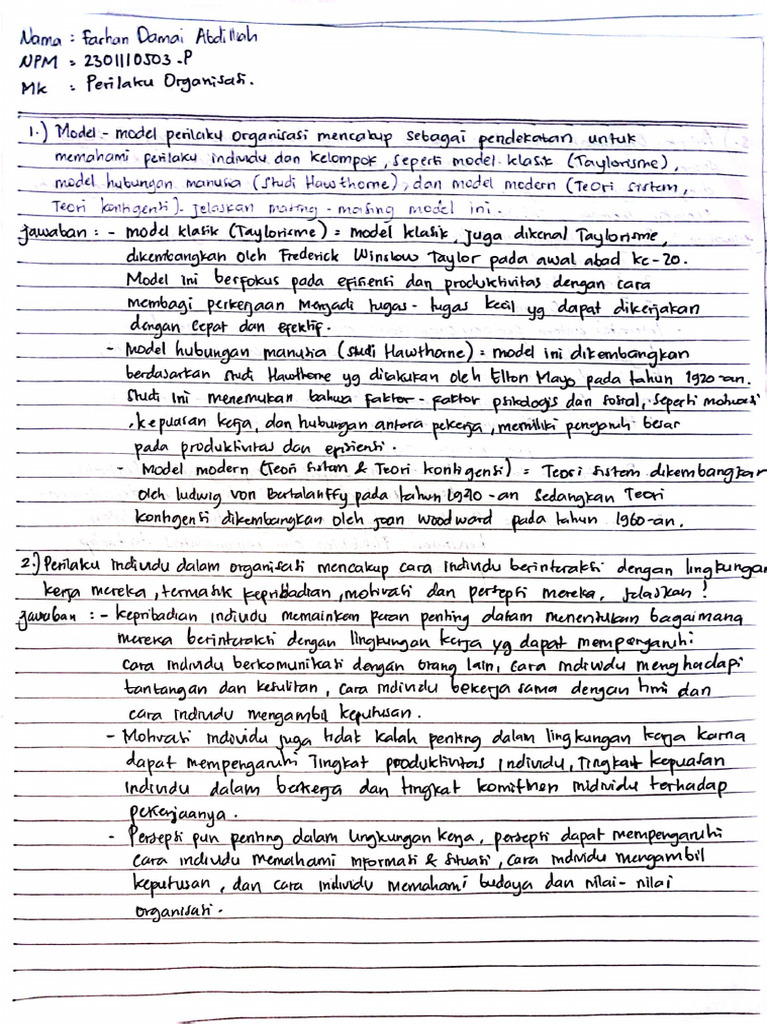 Nama : Farhan Damai Abdillah
NPM : 2301110503-P
Mk : Perilaku Organisasi.
1.) Model-model perilaku organisasi mencakup sebagai pendekatan untuk
memahami perilaku individu dan kelompok, seperti model klasik (Taylorisme),
model hubungan manusia (studi Hawthorne), dan model modern (Teori sistem,
Teori kontigenti). Jelaskan masing-masing model ini.
Jawaban : - model klasik (Taylorisme) = model klasik, juga dikenal Taylorisme,
dikembangkan oleh Frederick Winslow Taylor pada awal abad ke-20.
Model ini berfokus pada efisiensi dan produktivitas dengan cara
membagi perkerjaan menjadi tugas-tugas kecil yg dapat dikerjakan
dengan cepat dan efektif.
- Model hubungan manusia (studi Hawthorne) = model ini dikembangkan
berdasarkan studi Hawthorne yg dilakukan oleh Elton Mayo pada tahun 1920-an.
Studi ini menemukan bahwa faktor-faktor psikologis dan sosial, seperti motivasi
, kepuasan kerja, dan hubungan antara pekerja, memiliki pengaruh besar
pada produktivitas dan efisiensi.
- Model modern (Teori sistem & Teori kontigensi) = Teori sistem dikembangkan
oleh ludwig von Bertalanffy pada tahun 1940-an sedangkan Teori
kontigensi dikembangkan oleh joan woodward pada tahun 1960-an.
2.) Perilaku individu dalam organisasi mencakup cara individu berinteraksi dengan lingkungan
kerja mereka, termasuk kepribadian, motivasi dan persepsi mereka, jelaskan!
Jawaban : - kepribadian individu memainkan peran penting dalam menentukan bagaimana
mereka berinteraksi dengan lingkungan kerja yg dapat mempengaruhi
cara individu berkomunikasi dengan orang lain, cara individu menghadapi
tantangan dan kesulitan, cara individu bekerja sama dengan timi dan
cara individu mengambil keputusan.
- Motivasi individu juga tidak kalah penting dalam lingkungan kerja karna
dapat mempengaruhi Tingkat produktivitas individu, Tingkat kepuasan
individu dalam berkerja dan tingkat komitmen individu terhadap
pekerjaanya.
- Persepsi pun penting dalam lingkungan kerja, persepsi dapat mempengaruhi
cara individu memahami informasi & situasi, cara individu mengambil
keputusan, dan cara individu memahami budaya dan nilai-nilai
organisasi.